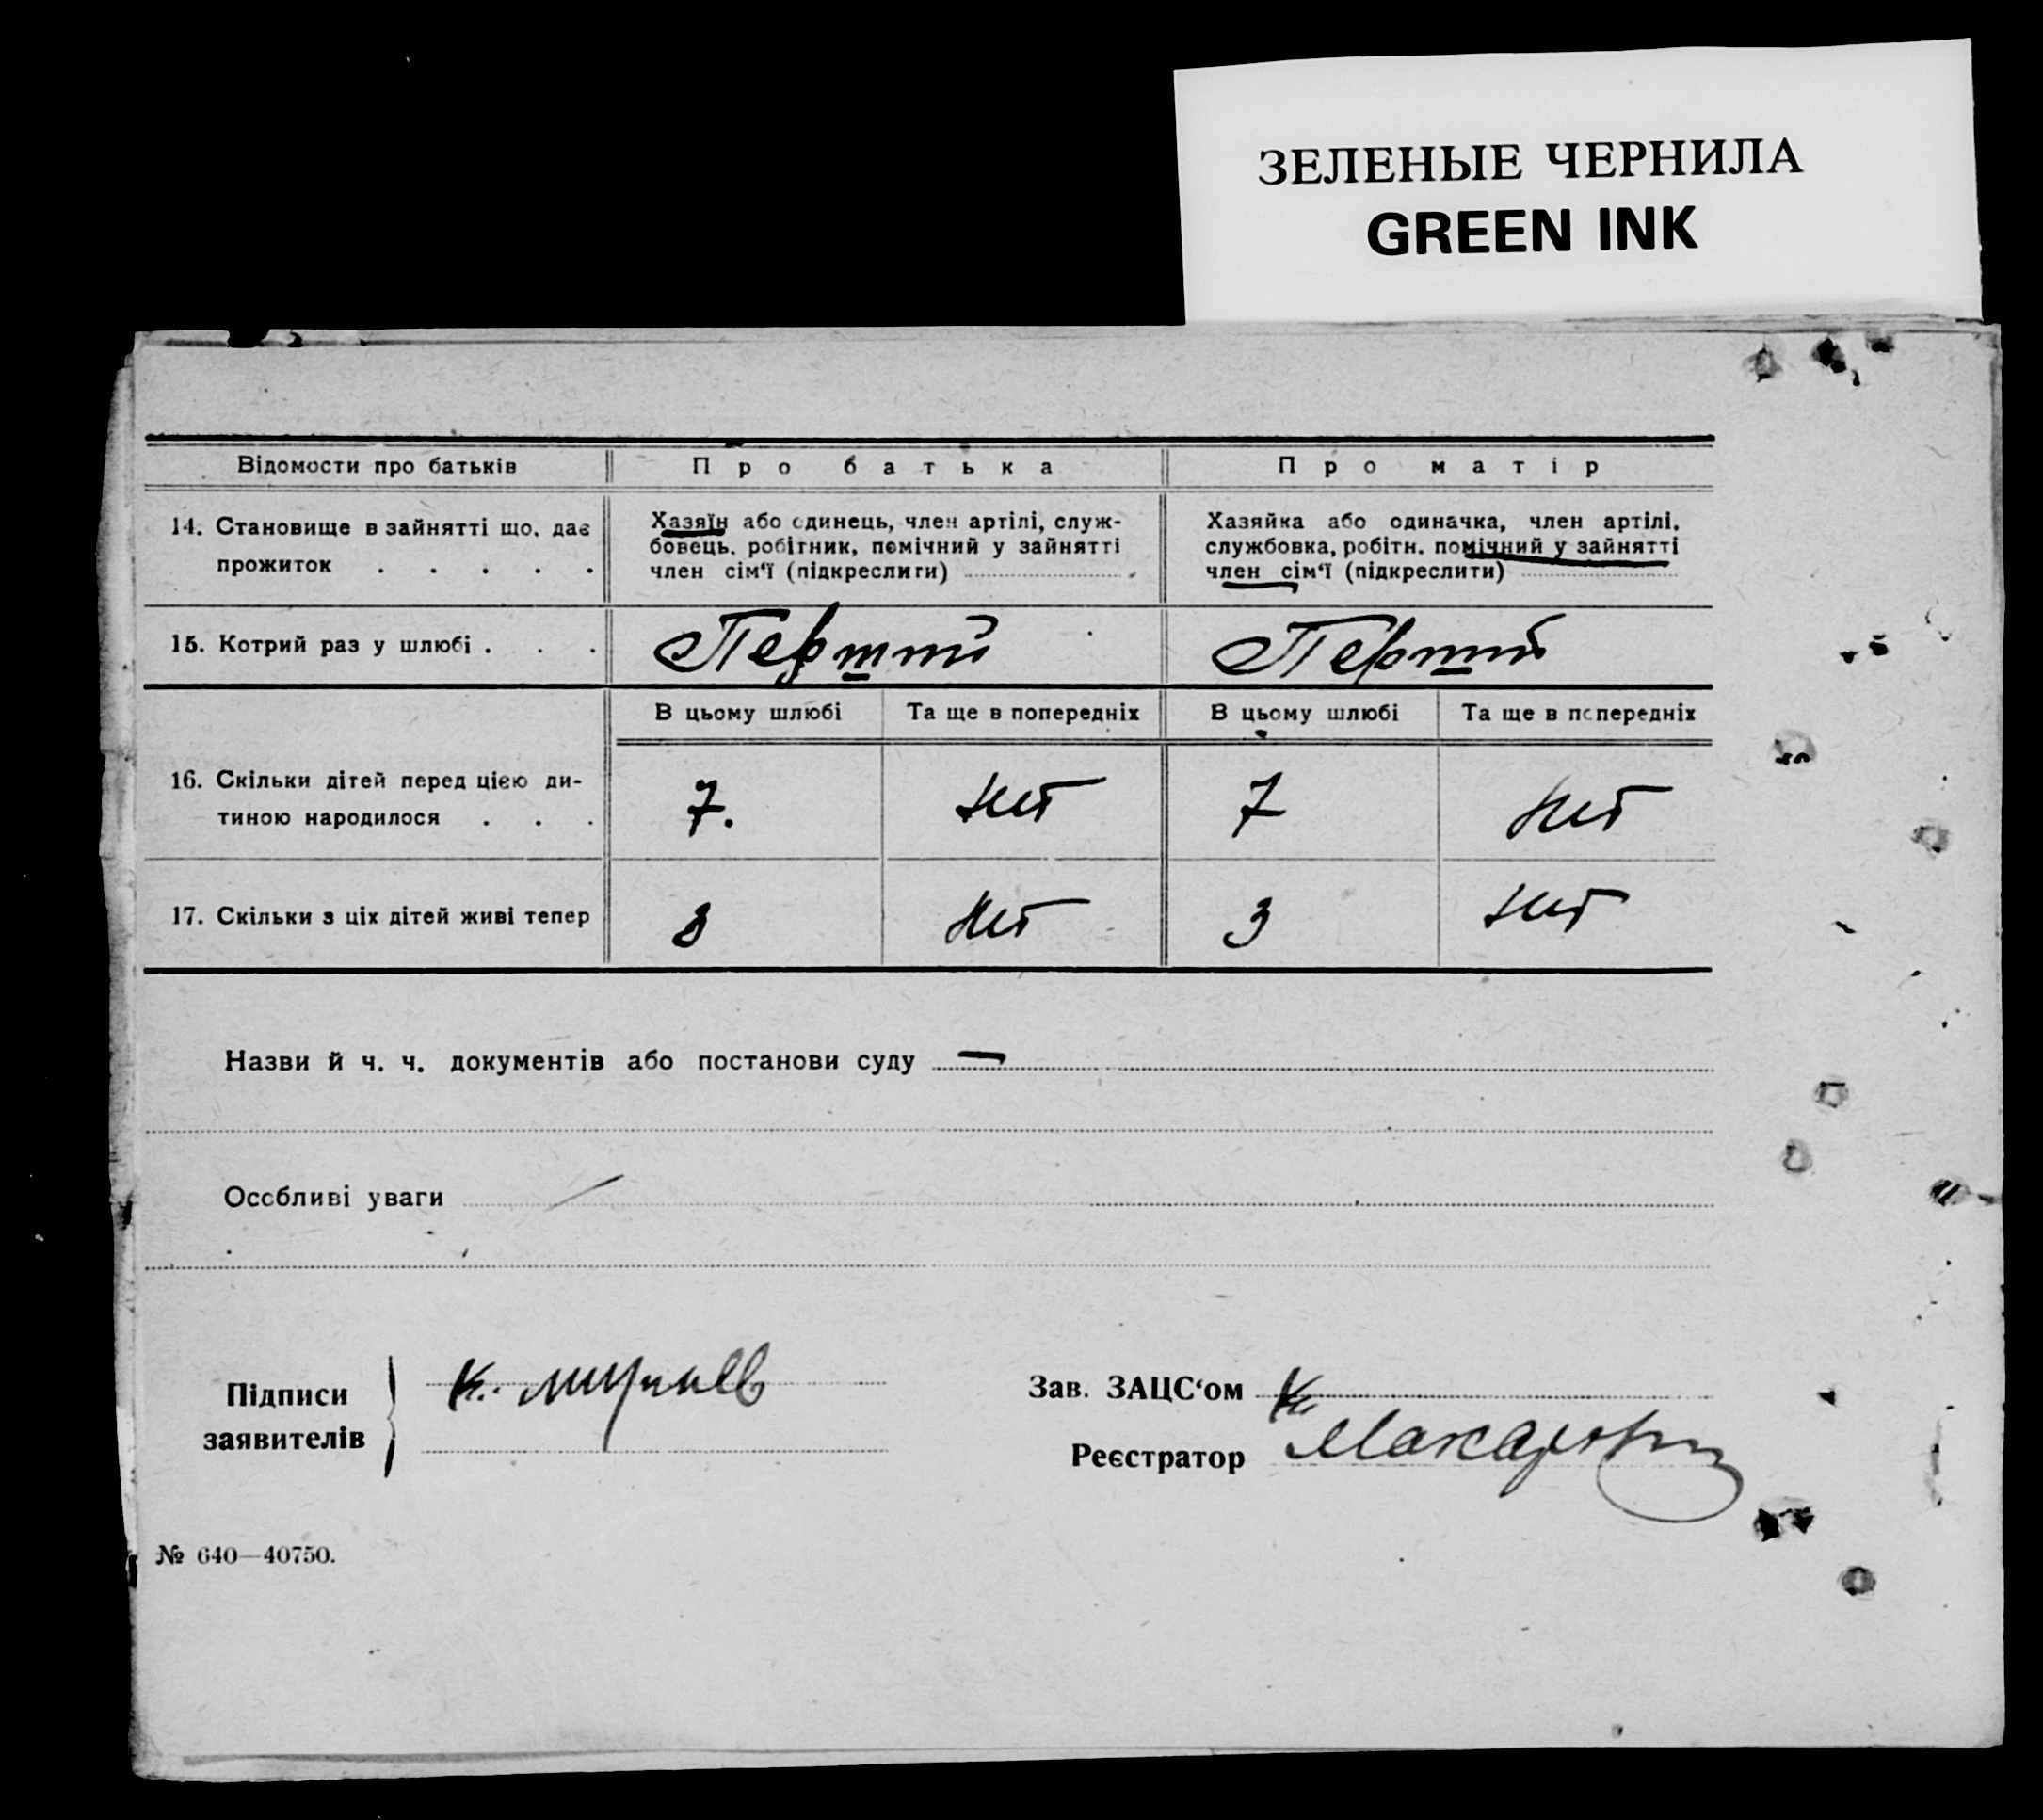 ЗЕЛЕНЫЕ ЧЕРНИЛА
GREEN INK
Відомости про батьків
Про батька
Про матір
14. Становище в зайнятті що, дає
прожиток . . . . .
Хазяїн або одинець, член артілі, служ-
бовець, робітник, помічний у зайнятті
член сім'ї (підкреслити)
Хазяйка або одиначка, член артілі,
службовка, робітн. помічний у зайнятті
член сім'ї (підкреслити)
15. Котрий раз у шлюбі . . .
Перший
Перший
В цьому шлюбі
Та ще в попередніх
В цьому шлюбі
Та ще в попередніх
16. Скільки дітей перед цією ди-
тиною народилося . . .
7.
нит
7
нит
17. Скільки з ціх дітей живі тепер
3
нит
3
нит
Назви й ч. ч. документів або постанови суду —
Особливі уваги
Підписи
заявителів
К.
Зав. ЗАЦС'ом
Реєстратор
№ 640—40750.